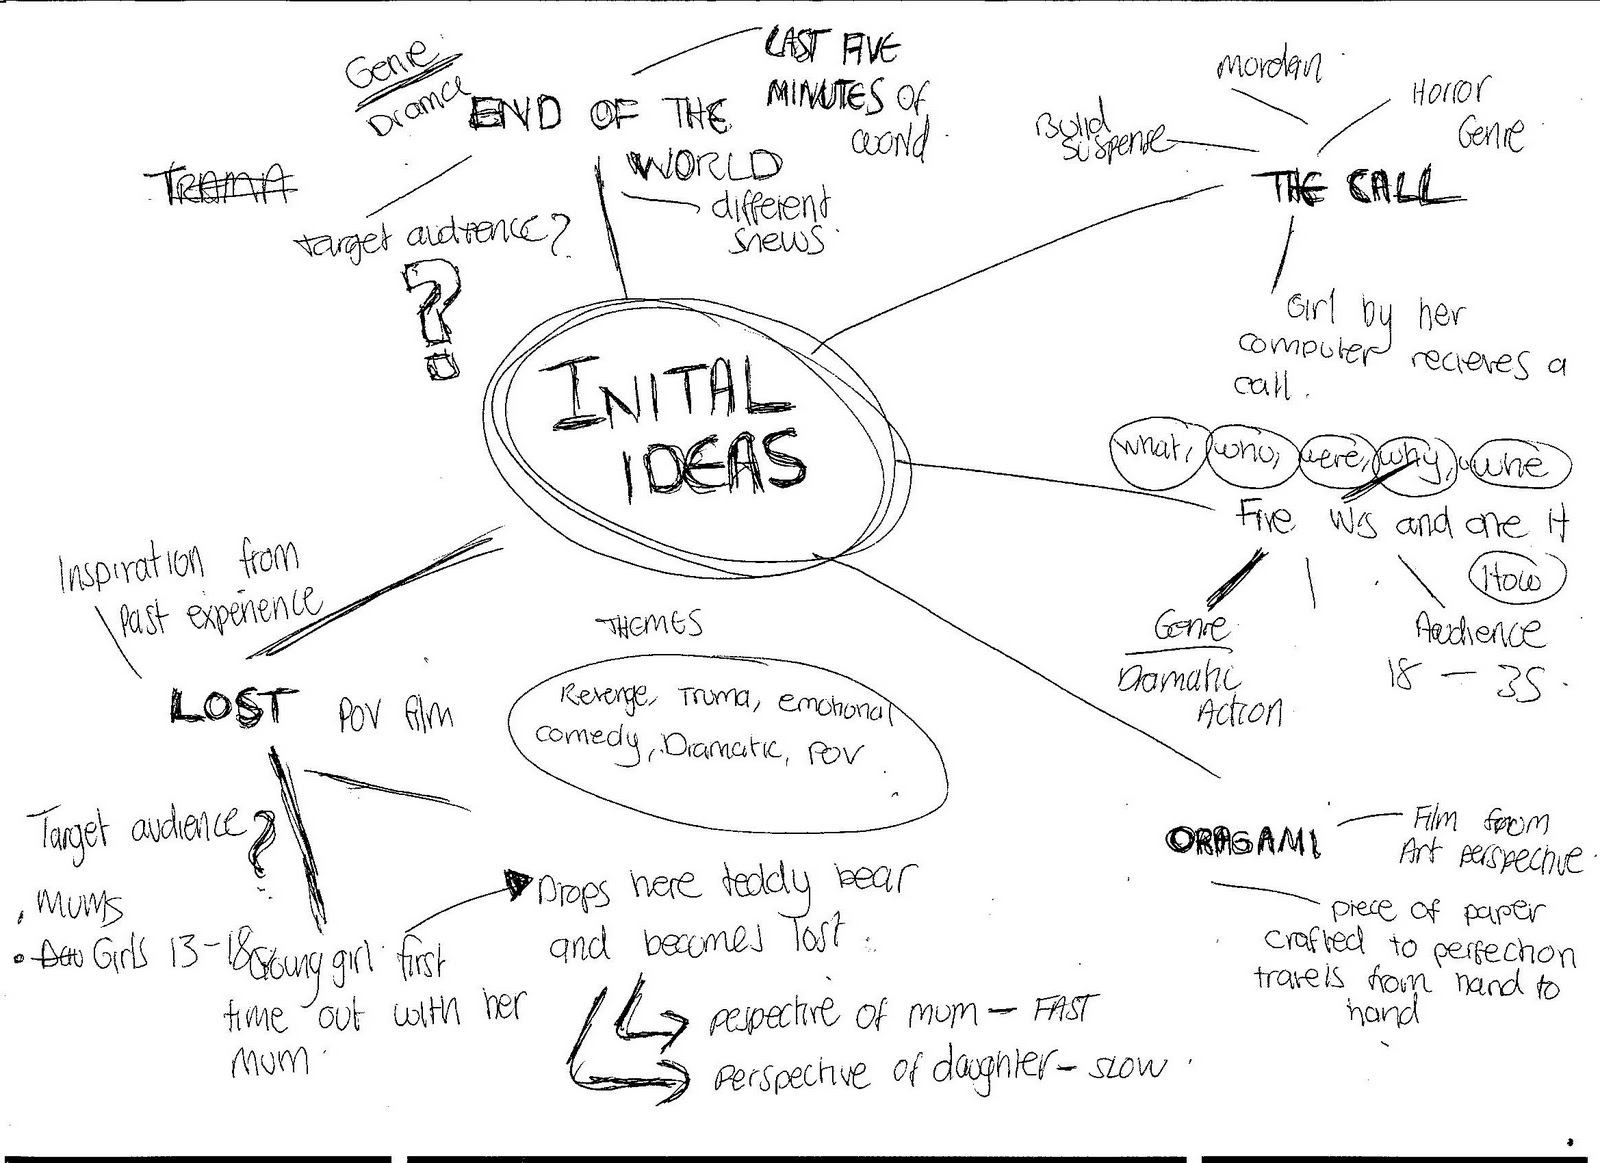 Genre
Dramce
END OF THE
WORLD
LAST FIVE
MINUTES OF
world.
TRAMA
Target audience?
?
different
snews.
Mordan
Horror
Genre.
Build
Suspense
THE CALL
Girl by her
computer recieves a
call.
INITAL
IDEAS
what, who, were, why, whe
Five W's and one H
How
Genre
Dramatic
Action
Audience
18 - 35.
Inspiration from
Past experience
LOST POV film
THEMES
Revenge, Truma, emotional
comedy, Dramatic, POV
Target audience?
. Mums
. Girls 13-18
Young girl first
time out with her
mum.
Drops here teddy bear
and becomes lost.
pespective of mum - FAST
Perspective of daughter - SLOW.
ORAGAMI
Film from
Art perspective.
piece of paper
crafted to perfection
travels from hand to
hand